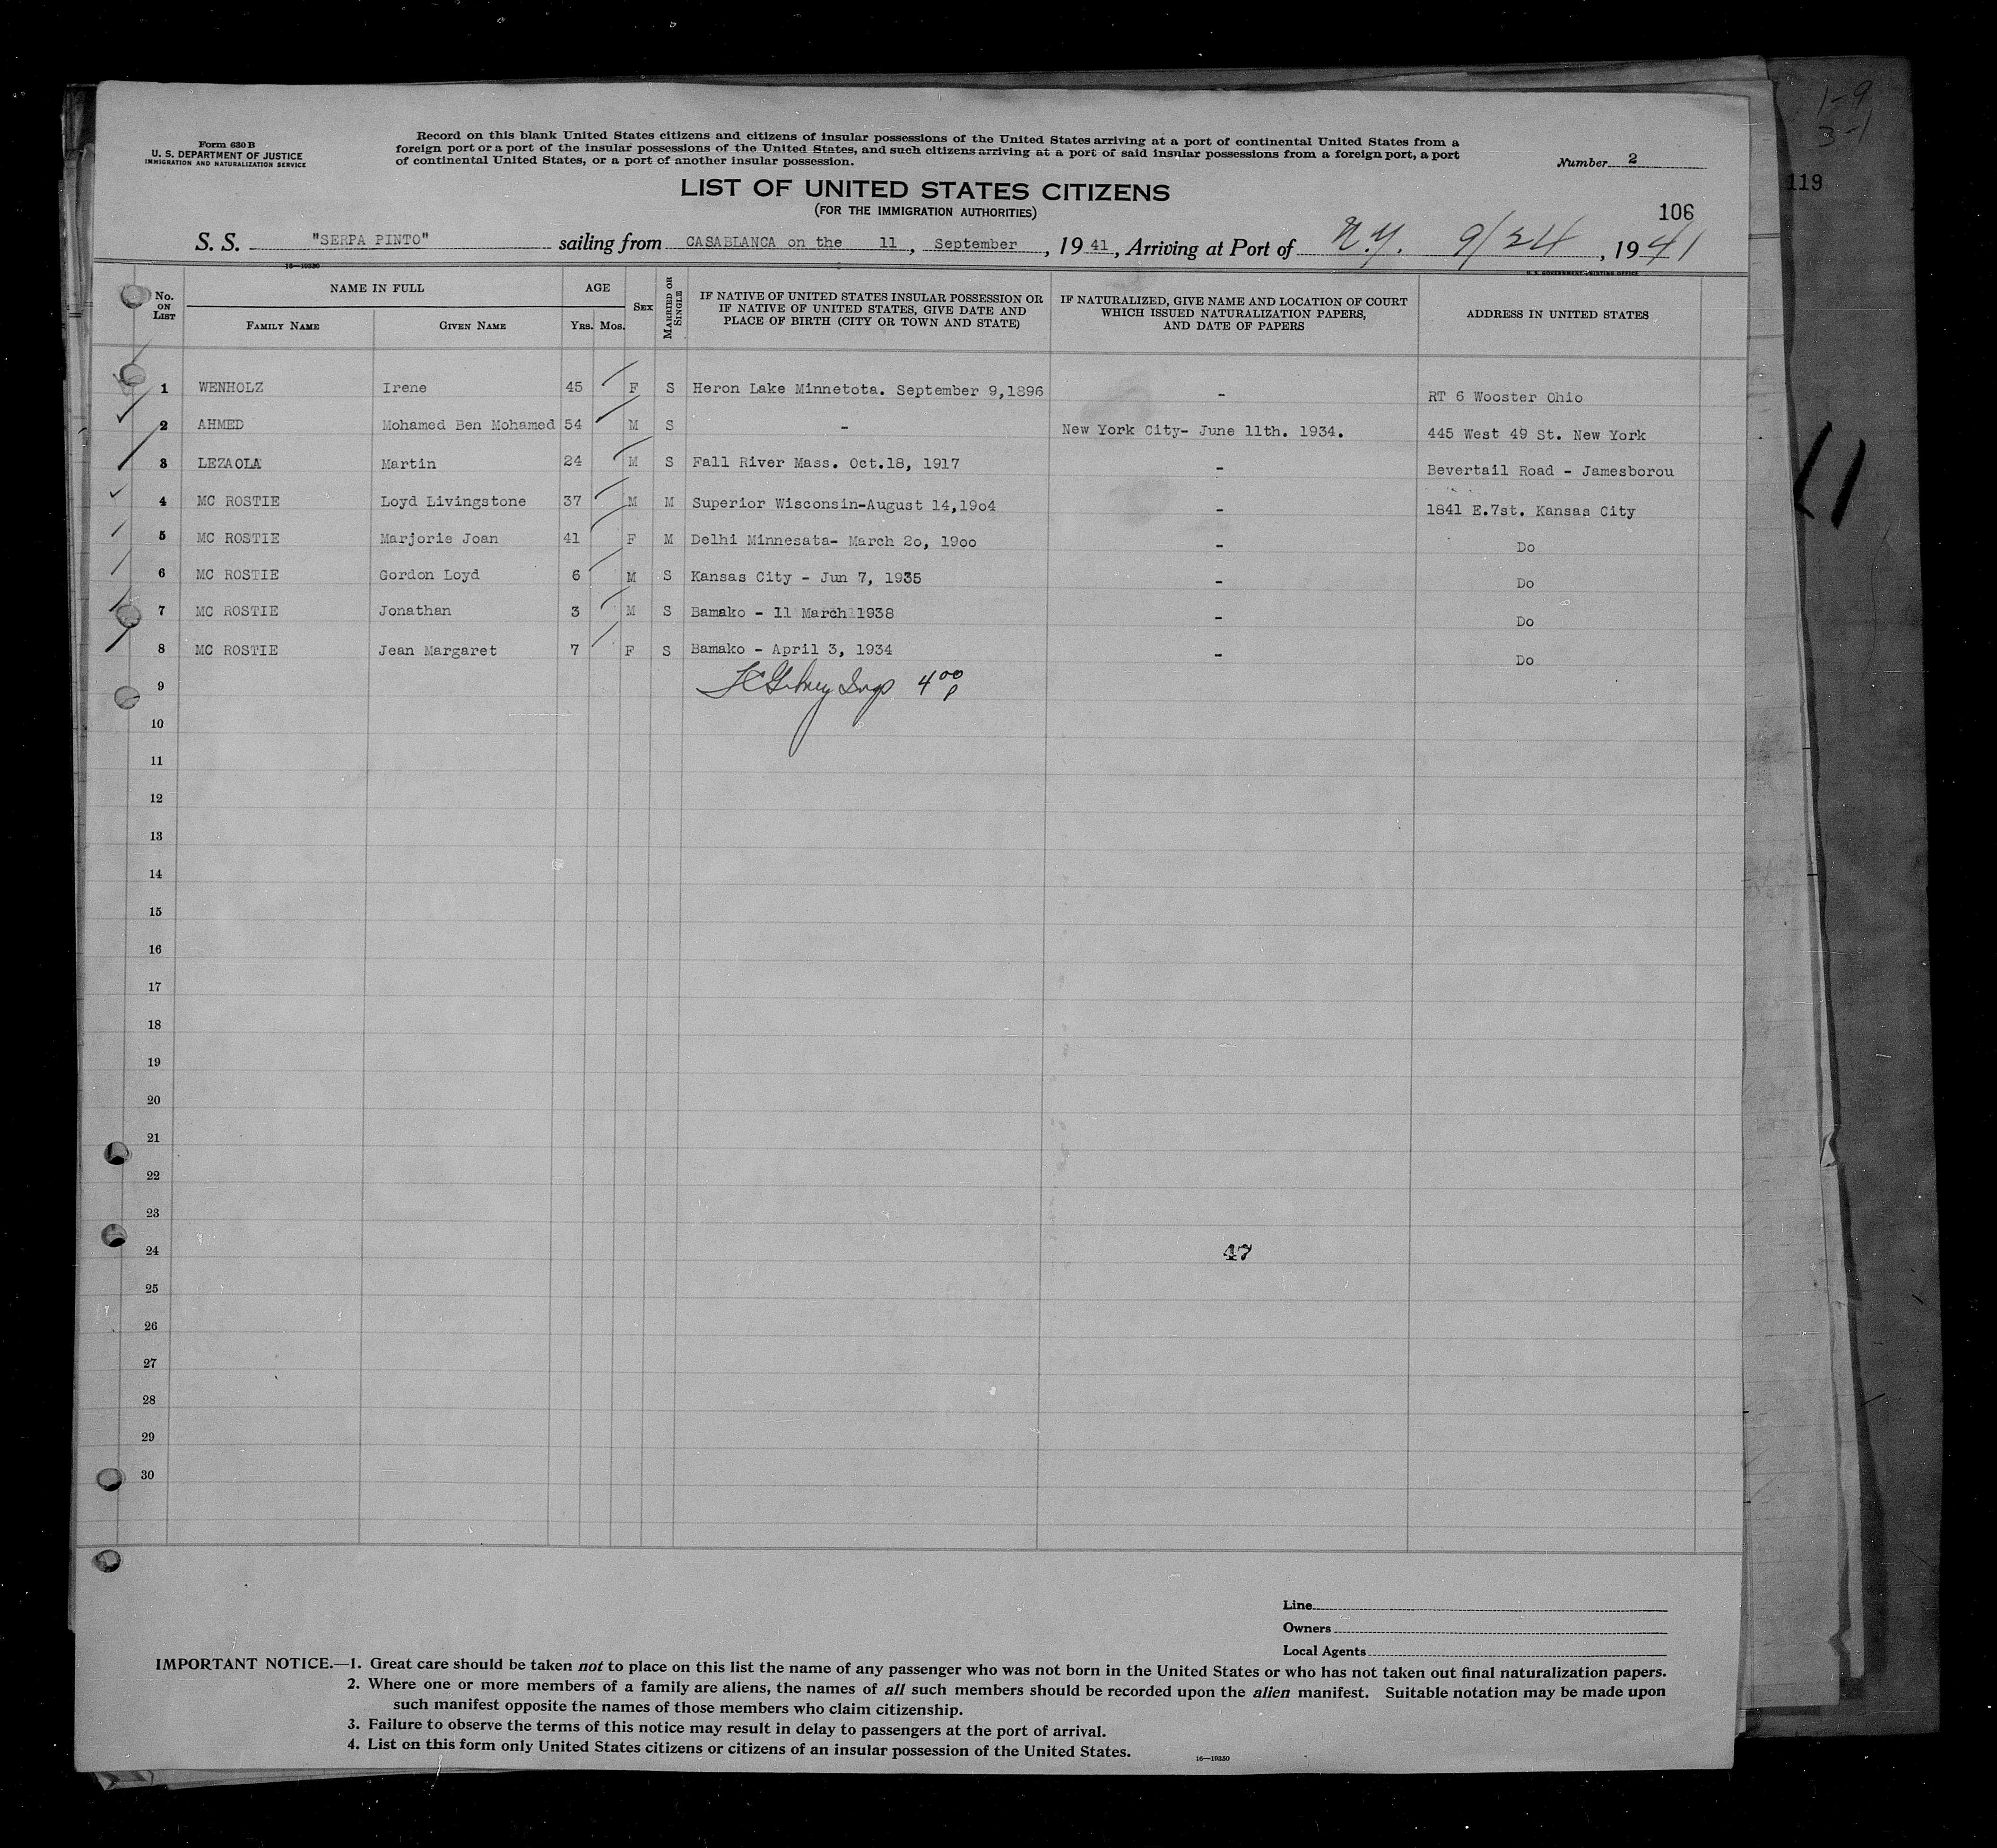 1-9
3-1
119
Form 630 B
U. S. DEPARTMENT OF JUSTICE
IMMIGRATION AND NATURALIZATION SERVICE
Record on this blank United States citizens and citizens of insular possessions of the United States arriving at a port of continental United States from a
foreign port or a port of the insular possessions of the United States, and such citizens arriving at a port of said insular possessions from a foreign port, a port
of continental United States, or a port of another insular possession.
Number 2
LIST OF UNITED STATES CITIZENS
(FOR THE IMMIGRATION AUTHORITIES)
106
S. S. "SERPA PINTO" sailing from CASABLANCA on the 11, September, 19 41, Arriving at Port of N.Y. 9/24, 1941
16—19350
U. S. GOVERNMENT PRINTING OFFICE
No. ON LIST NAME IN FULL AGE SEX MARRIED OR SINGLE IF NATIVE OF UNITED STATES INSULAR POSSESSION OR IF NATIVE OF UNITED STATES, GIVE DATE AND PLACE OF BIRTH (CITY OR TOWN AND STATE) IF NATURALIZED, GIVE NAME AND LOCATION OF COURT WHICH ISSUED NATURALIZATION PAPERS, AND DATE OF PAPERS ADDRESS IN UNITED STATES
FAMILY NAME GIVEN NAME YRS. MOS.
1 WENHOLZ Irene 45 F S Heron Lake Minnetota. September 9,1896 - RT 6 Wooster Ohio
2 AHMED Mohamed Ben Mohamed 54 M S - New York City- June 11th. 1934. 445 West 49 St. New York
3 LEZAOLA Martin 24 M S Fall River Mass. Oct.18, 1917 - Bevertail Road - Jamesborou
4 MC ROSTIE Loyd Livingstone 37 M M Superior Wisconsin-August 14,19o4 - 1841 E.7st. Kansas City
5 MC ROSTIE Marjorie Joan 41 F M Delhi Minnesata- March 2o, 19oo - Do
6 MC ROSTIE Gordon Loyd 6 M S Kansas City - Jun 7, 1935 - Do
7 MC ROSTIE Jonathan 3 M S Bamako - 11 March 1938 - Do
8 MC ROSTIE Jean Margaret 7 F S Bamako - April 3, 1934 - Do
9 Insp 4 00 P
10
11
12
13
14
15
16
17
18
19
20
21
22
23
24 47
25
26
27
28
29
30
Line
Owners
Local Agents
IMPORTANT NOTICE.—1. Great care should be taken not to place on this list the name of any passenger who was not born in the United States or who has not taken out final naturalization papers.
2. Where one or more members of a family are aliens, the names of all such members should be recorded upon the alien manifest. Suitable notation may be made upon
such manifest opposite the names of those members who claim citizenship.
3. Failure to observe the terms of this notice may result in delay to passengers at the port of arrival.
4. List on this form only United States citizens or citizens of an insular possession of the United States.
16—19350